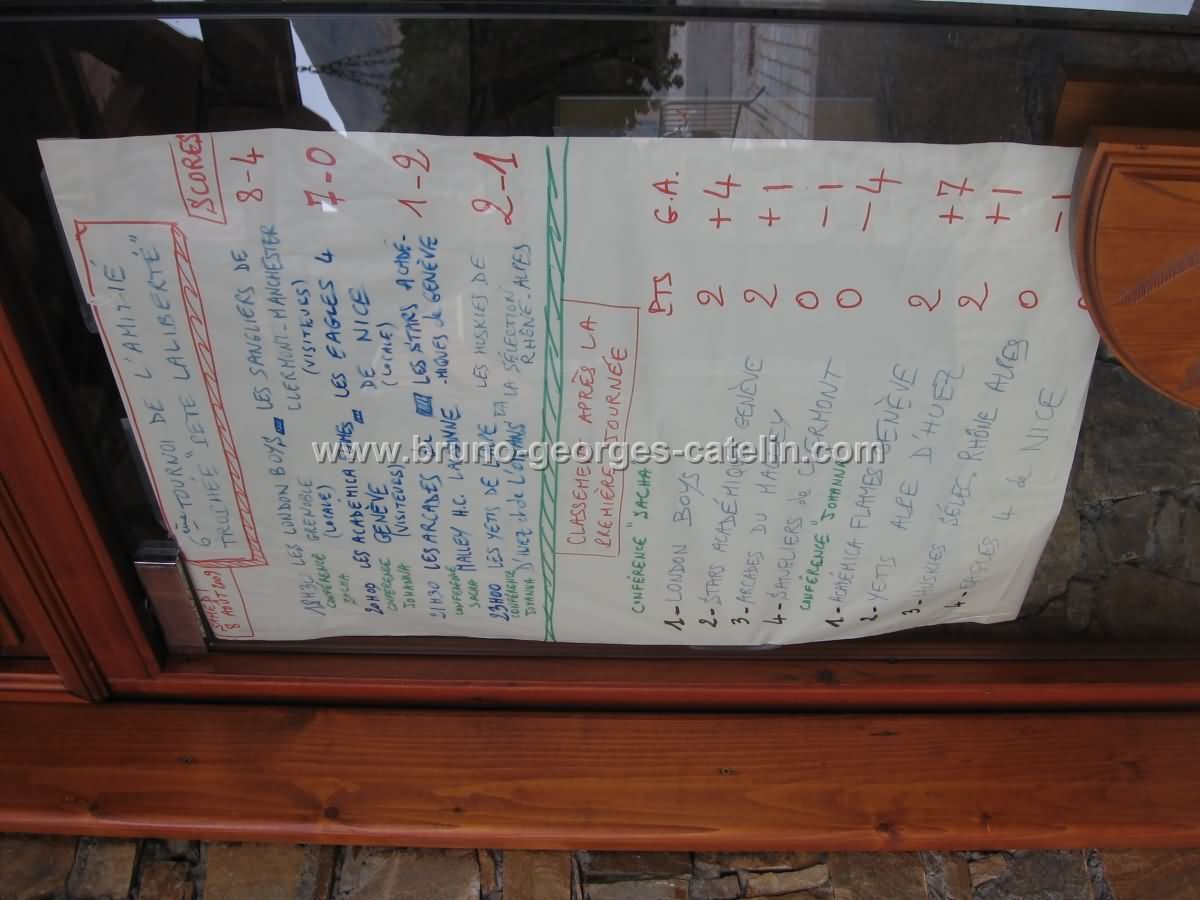 SAMEDI
8 AOUT 2009
6ème TOURNOI DE L'AMITIÉ
TROPHÉE "PETE LALIBERTÉ"
SCORES
18H30 LES LONDON BOYS LES SANGLIERS DE 8-4
CONFÉRENCE GRENOBLE CLERMONT-MANCHESTER
SACHA (LOCALE) (VISITEURS)
20H00 LES ACADEMICA LES EAGLES 4 7-0
CONFÉRENCE GENÈVE DE NICE
JOHANNA (VISITEURS) (LOCALE)
21H30 LES ARCADES DU LES STARS ACADÉ- 1-2
CONFÉRENCE MALLEY H.C. LAUSANNE -MIQUES de GENÈVE
SACHA
23H00 LES YETIS DE L'ALPE LES HUSKIES DE 2-1
CONFÉRENCE D'Huez et de L'OISANS LA SÉLECTION
JOHANNA RHÔNE.ALPES
CLASSEMENT APRÈS LA
PREMIÈRE JOURNÉE
PTS G.A.
CONFÉRENCE "SACHA"
1- LONDON BOYS 2 +4
2- STARS ACADÉMIQUES GENÈVE 2 +1
3- ARCADES DU MALLEY 0 -1
4- SANGLIERS de CLERMONT 0 -4
CONFÉRENCE "JOHANNA"
1- ACADÉMICA FLAMES GENÈVE 2 +7
2- YETIS ALPE D'HUEZ 2 +1
3- HUSKIES SÉLEC. RHÔNE ALPES 0 -1
4- EAGLES 4 de NICE
www.bruno-georges-catelin.com